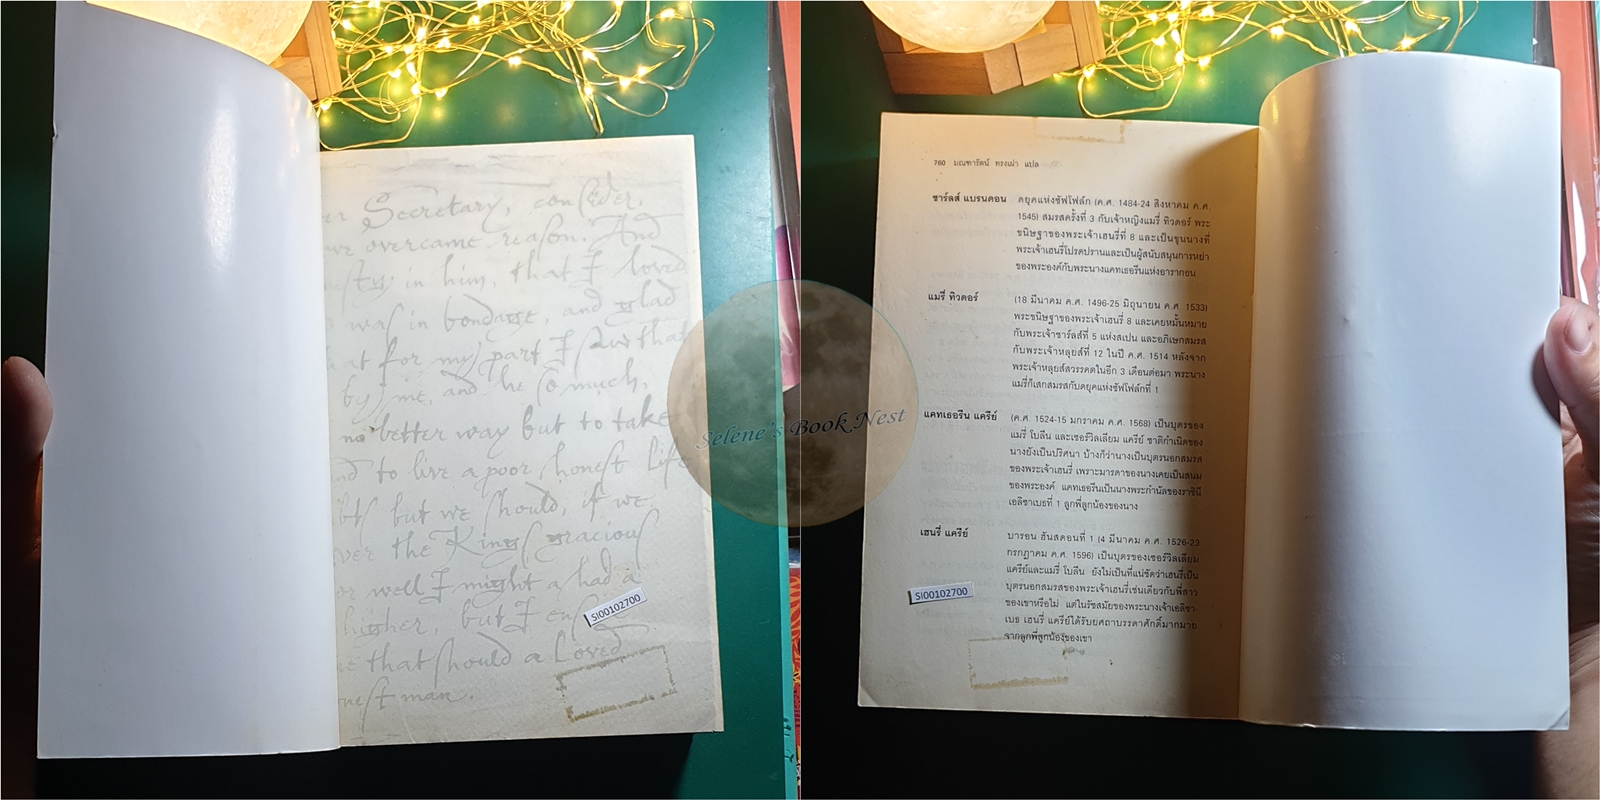 er Secretary, consider,
ave overcame reason. And
nesty in him, that I loved
was in bondage, and glad
at for my part I saw that
by me, and he so much,
no better way but to take
nd to live a poor honest life
bts but we should, if we
ver the Kings gracious
or well I might a had a
higher, but I
e that should a Loved
nest man.
SI00102700
Selene's Book Nest
760 มณฑารัตน์ ทรงเผ่า แปล
ชาร์ลส์ แบรนดอน ดยุคแห่งซัฟโฟล์ก (ค.ศ. 1484-24 สิงหาคม ค.ศ.
1545) สมรสครั้งที่ 3 กับเจ้าหญิงแมรี่ ทิวดอร์ พระ
ขนิษฐาของพระเจ้าเฮนรี่ที่ 8 และเป็นขุนนางที่
พระเจ้าเฮนรี่โปรดปรานและเป็นผู้สนับสนุนการหย่า
ของพระองค์กับพระนางแคทเธอรีนแห่งอารากอน
แมรี่ ทิวดอร์ (18 มีนาคม ค.ศ. 1496-25 มิถุนายน ค.ศ. 1533)
พระขนิษฐาของพระเจ้าเฮนรี่ 8 และเคยหมั้นหมาย
กับพระเจ้าชาร์ลส์ที่ 5 แห่งสเปน และอภิเษกสมรส
กับพระเจ้าหลุยส์ที่ 12 ในปี ค.ศ. 1514 หลังจาก
พระเจ้าหลุยส์สวรรคตในอีก 3 เดือนต่อมา พระนาง
แมรี่ก็เสกสมรสกับดยุคแห่งซัฟโฟล์กที่ 1
แคทเธอรีน แครีย์ (ค.ศ. 1524-15 มกราคม ค.ศ. 1568) เป็นบุตรของ
แมรี่ โบลีน และเซอร์วิลเลียม แครีย์ ชาติกำเนิดของ
นางยังเป็นปริศนา บ้างก็ว่านางเป็นบุตรนอกสมรส
ของพระเจ้าเฮนรี่ เพราะมารดาของนางเคยเป็นสนม
ของพระองค์ แคทเธอรีนเป็นนางพระกำนัลของราชินี
เอลิซาเบธที่ 1 ลูกพี่ลูกน้องของนาง
เฮนรี่ แครีย์ บารอน ฮันสดอนที่ 1 (4 มีนาคม ค.ศ. 1526-23
กรกฎาคม ค.ศ. 1596) เป็นบุตรของเซอร์วิลเลียม
แครีย์และแมรี่ โบลีน ยังไม่เป็นที่แน่ชัดว่าเฮนรี่เป็น
บุตรนอกสมรสของพระเจ้าเฮนรี่เช่นเดียวกับพี่สาว
ของเขาหรือไม่ แต่ในรัชสมัยของพระนางเจ้าเอลิซา-
เบธ เฮนรี่ แครีย์ได้รับยศถาบรรดาศักดิ์มากมาย
จากลูกพี่ลูกน้องของเขา
SI00102700